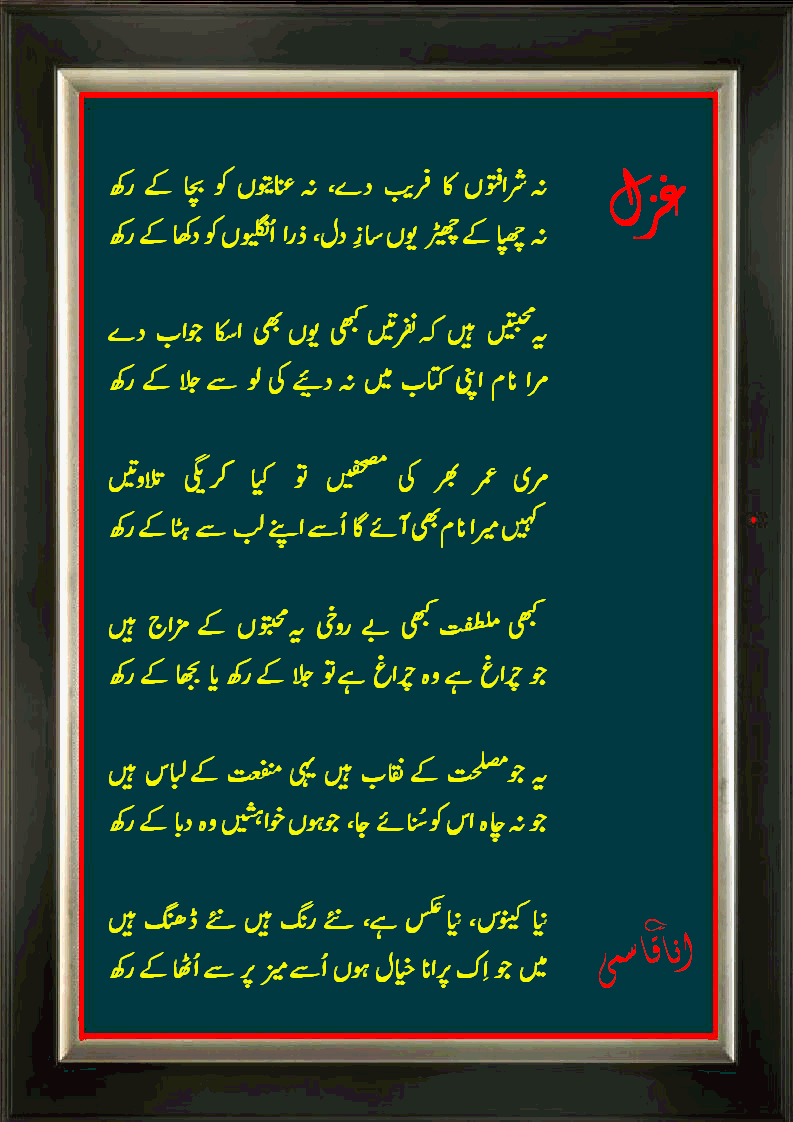 غزل
نہ شرافتوں کا فریب دے، نہ عنایتوں کو بچا کے رکھ
نہ چھپا کے چھیڑ یوں سازِ دل، ذرا اُنگلیوں کو دکھا کے رکھ
یہ محبتیں ہیں کہ نفرتیں کبھی یوں بھی اسکا جواب دے
مرا نام اپنی کتاب میں نہ دیئے کی لو سے جلا کے رکھ
مری عمر بھر کی مصحفیں تو کیا کر یگی تلاوتیں
کہیں میرا نام بھی آئے گا اُسے اپنے لب سے ہٹا کے رکھ
کبھی ملطفت کبھی بے روخی یہ محبتوں کے مزاج ہیں
جو چراغ ہے وہ چراغ ہے تو جلا کے رکھ یا بجھا کے رکھ
یہ جو مصلحت کے نقاب ہیں یہی منفعت کے لباس ہیں
جو نہ چاہ اس کو سُنائے جا، جو ہوں خواہشیں وہ دبا کے رکھ
نیا کینوس، نیا عکس ہے، نئے رنگ ہیں نئے ڈھنگ ہیں
میں جو اِک پرانا خیال ہوں اُسے میز پر سے اُٹھا کے رکھ
انا قاسمی